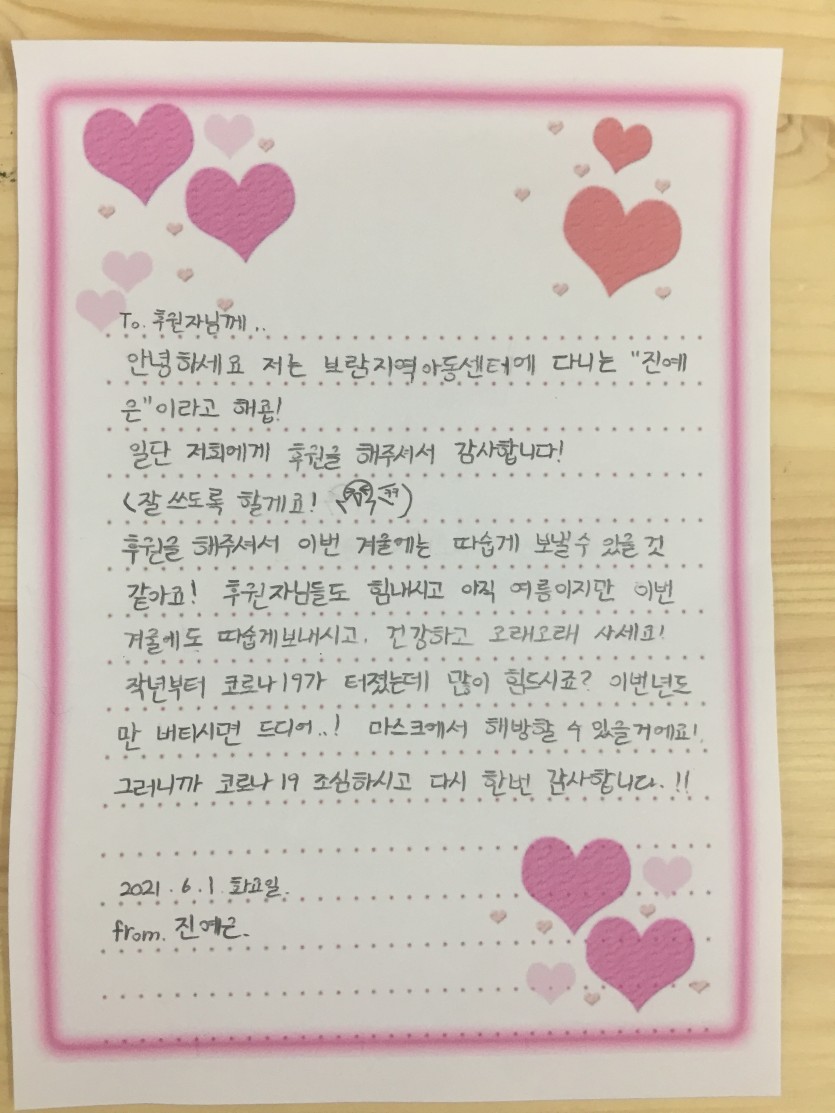 To. 후원자님께..
안녕하세요 저는 보람지역아동센터에 다니는 "진예
은"이라고 해욥!
일단 저희에게 후원을 해주셔서 감사합니다!
(잘 쓰도록 할게요!
후원을 해주셔서 이번 겨울에는 따숩게 보낼수 있을것
같아요! 후원자님들도 힘내시고 아직 여름이지만 이번
겨울에도 따숩게보내시고. 건강하고 오래오래 사세요!
작년부터 코로나19가 터졌는데 많이 힘드시죠? 이번년도
만 버티시면 드디어..! 마스크에서 해방할 수 있을거에요!
그러니까 코로나19 조심하시고 다시 한번 감사합니다.!!
2021.6.1 화요일.
from. 진예은.